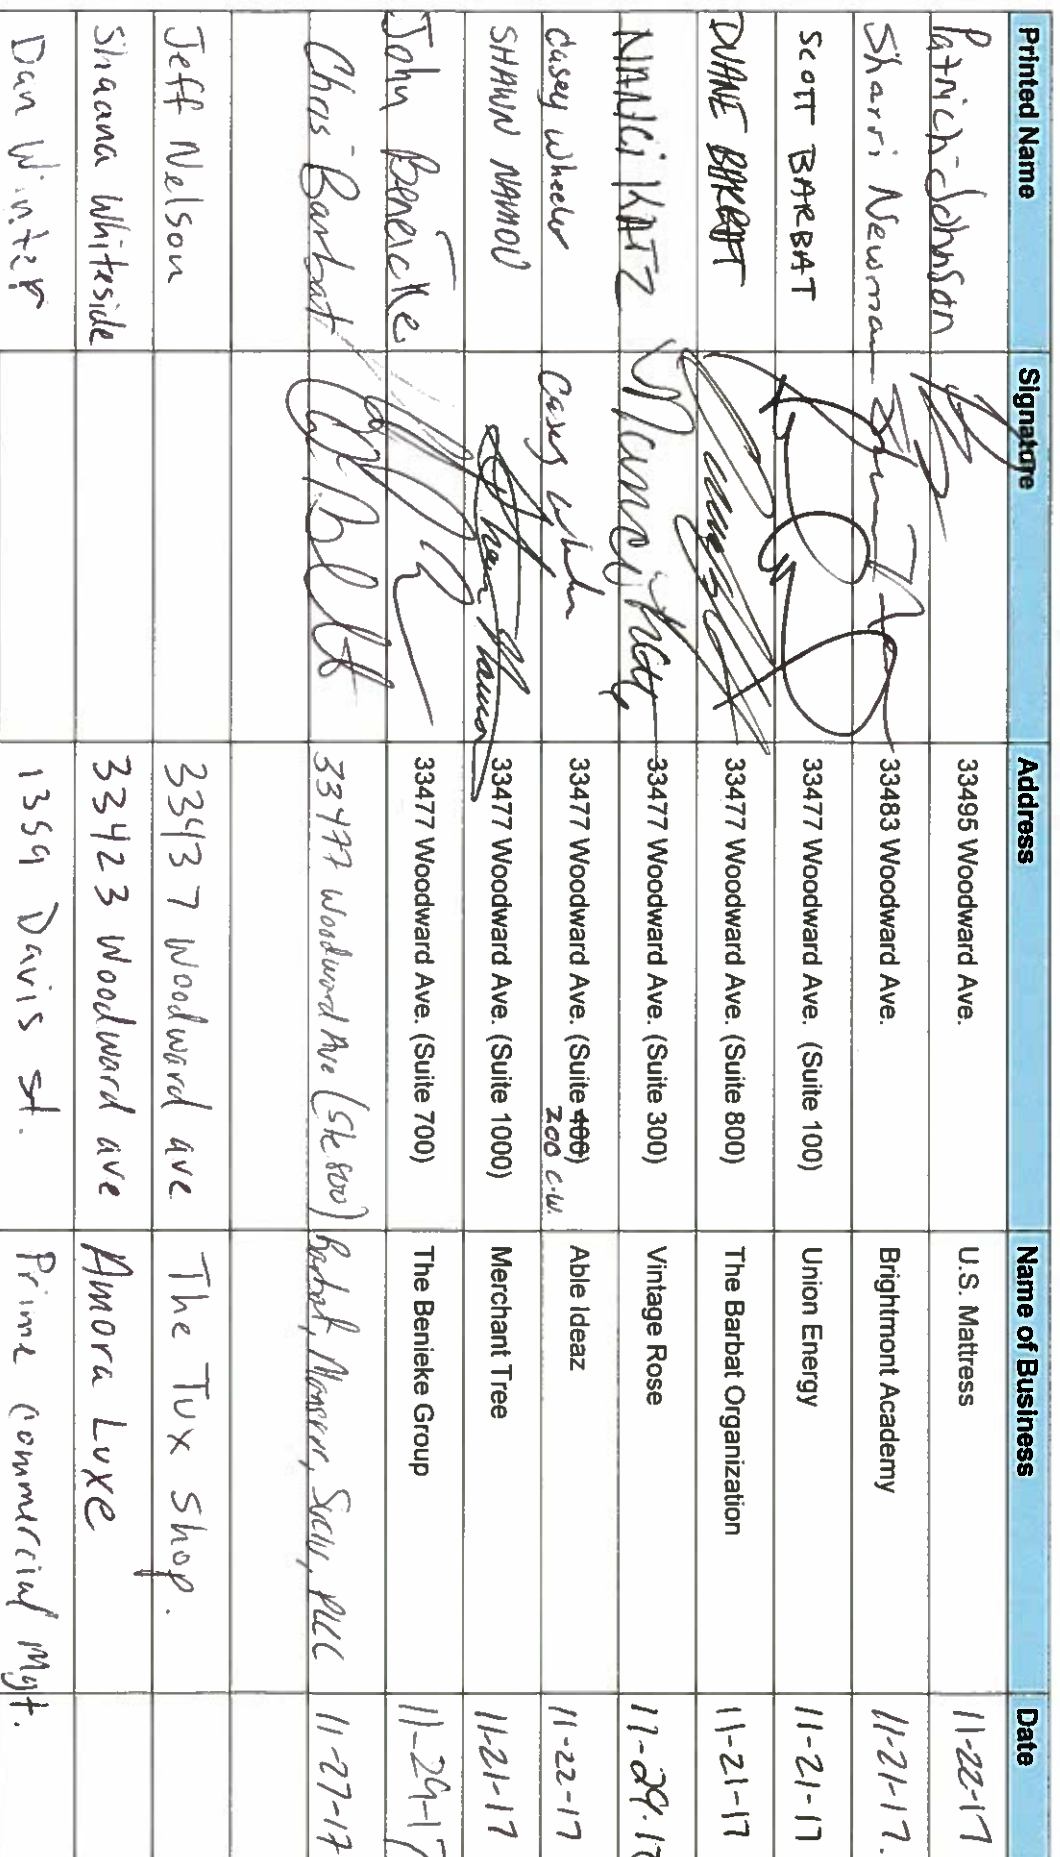 Printed Name Signature Address Name of Business Date
Patrich Johnson 33495 Woodward Ave. U.S. Mattress 11-22-17
Sharri Newman 33483 Woodward Ave. Brightmont Academy 11-21-17.
SCOTT BARBAT 33477 Woodward Ave. (Suite 100) Union Energy 11-21-17
DUANE BARBAT 33477 Woodward Ave. (Suite 800) The Barbat Organization 11-21-17
NANCI KATZ Nanci Katz 33477 Woodward Ave. (Suite 300) Vintage Rose 11-29-17
Casey Wheeler Casey Whlr 33477 Woodward Ave. (Suite 400) Able Ideaz 11-22-17
200 C.W.
SHAWN NAMOU 33477 Woodward Ave. (Suite 1000) Merchant Tree 11-21-17
John Beneicke 33477 Woodward Ave. (Suite 700) The Benieke Group 11-29-17
Chris Barbat 33477 Woodward Ave (Ste 800) Barbat, PLLC 11-27-17
Jeff Nelson 33437 Woodward ave The Tux shop.
Shauna Whiteside 33423 Woodward ave Amora Luxe
Dan Winter 1359 Davis st. Prime commercial Mgt.